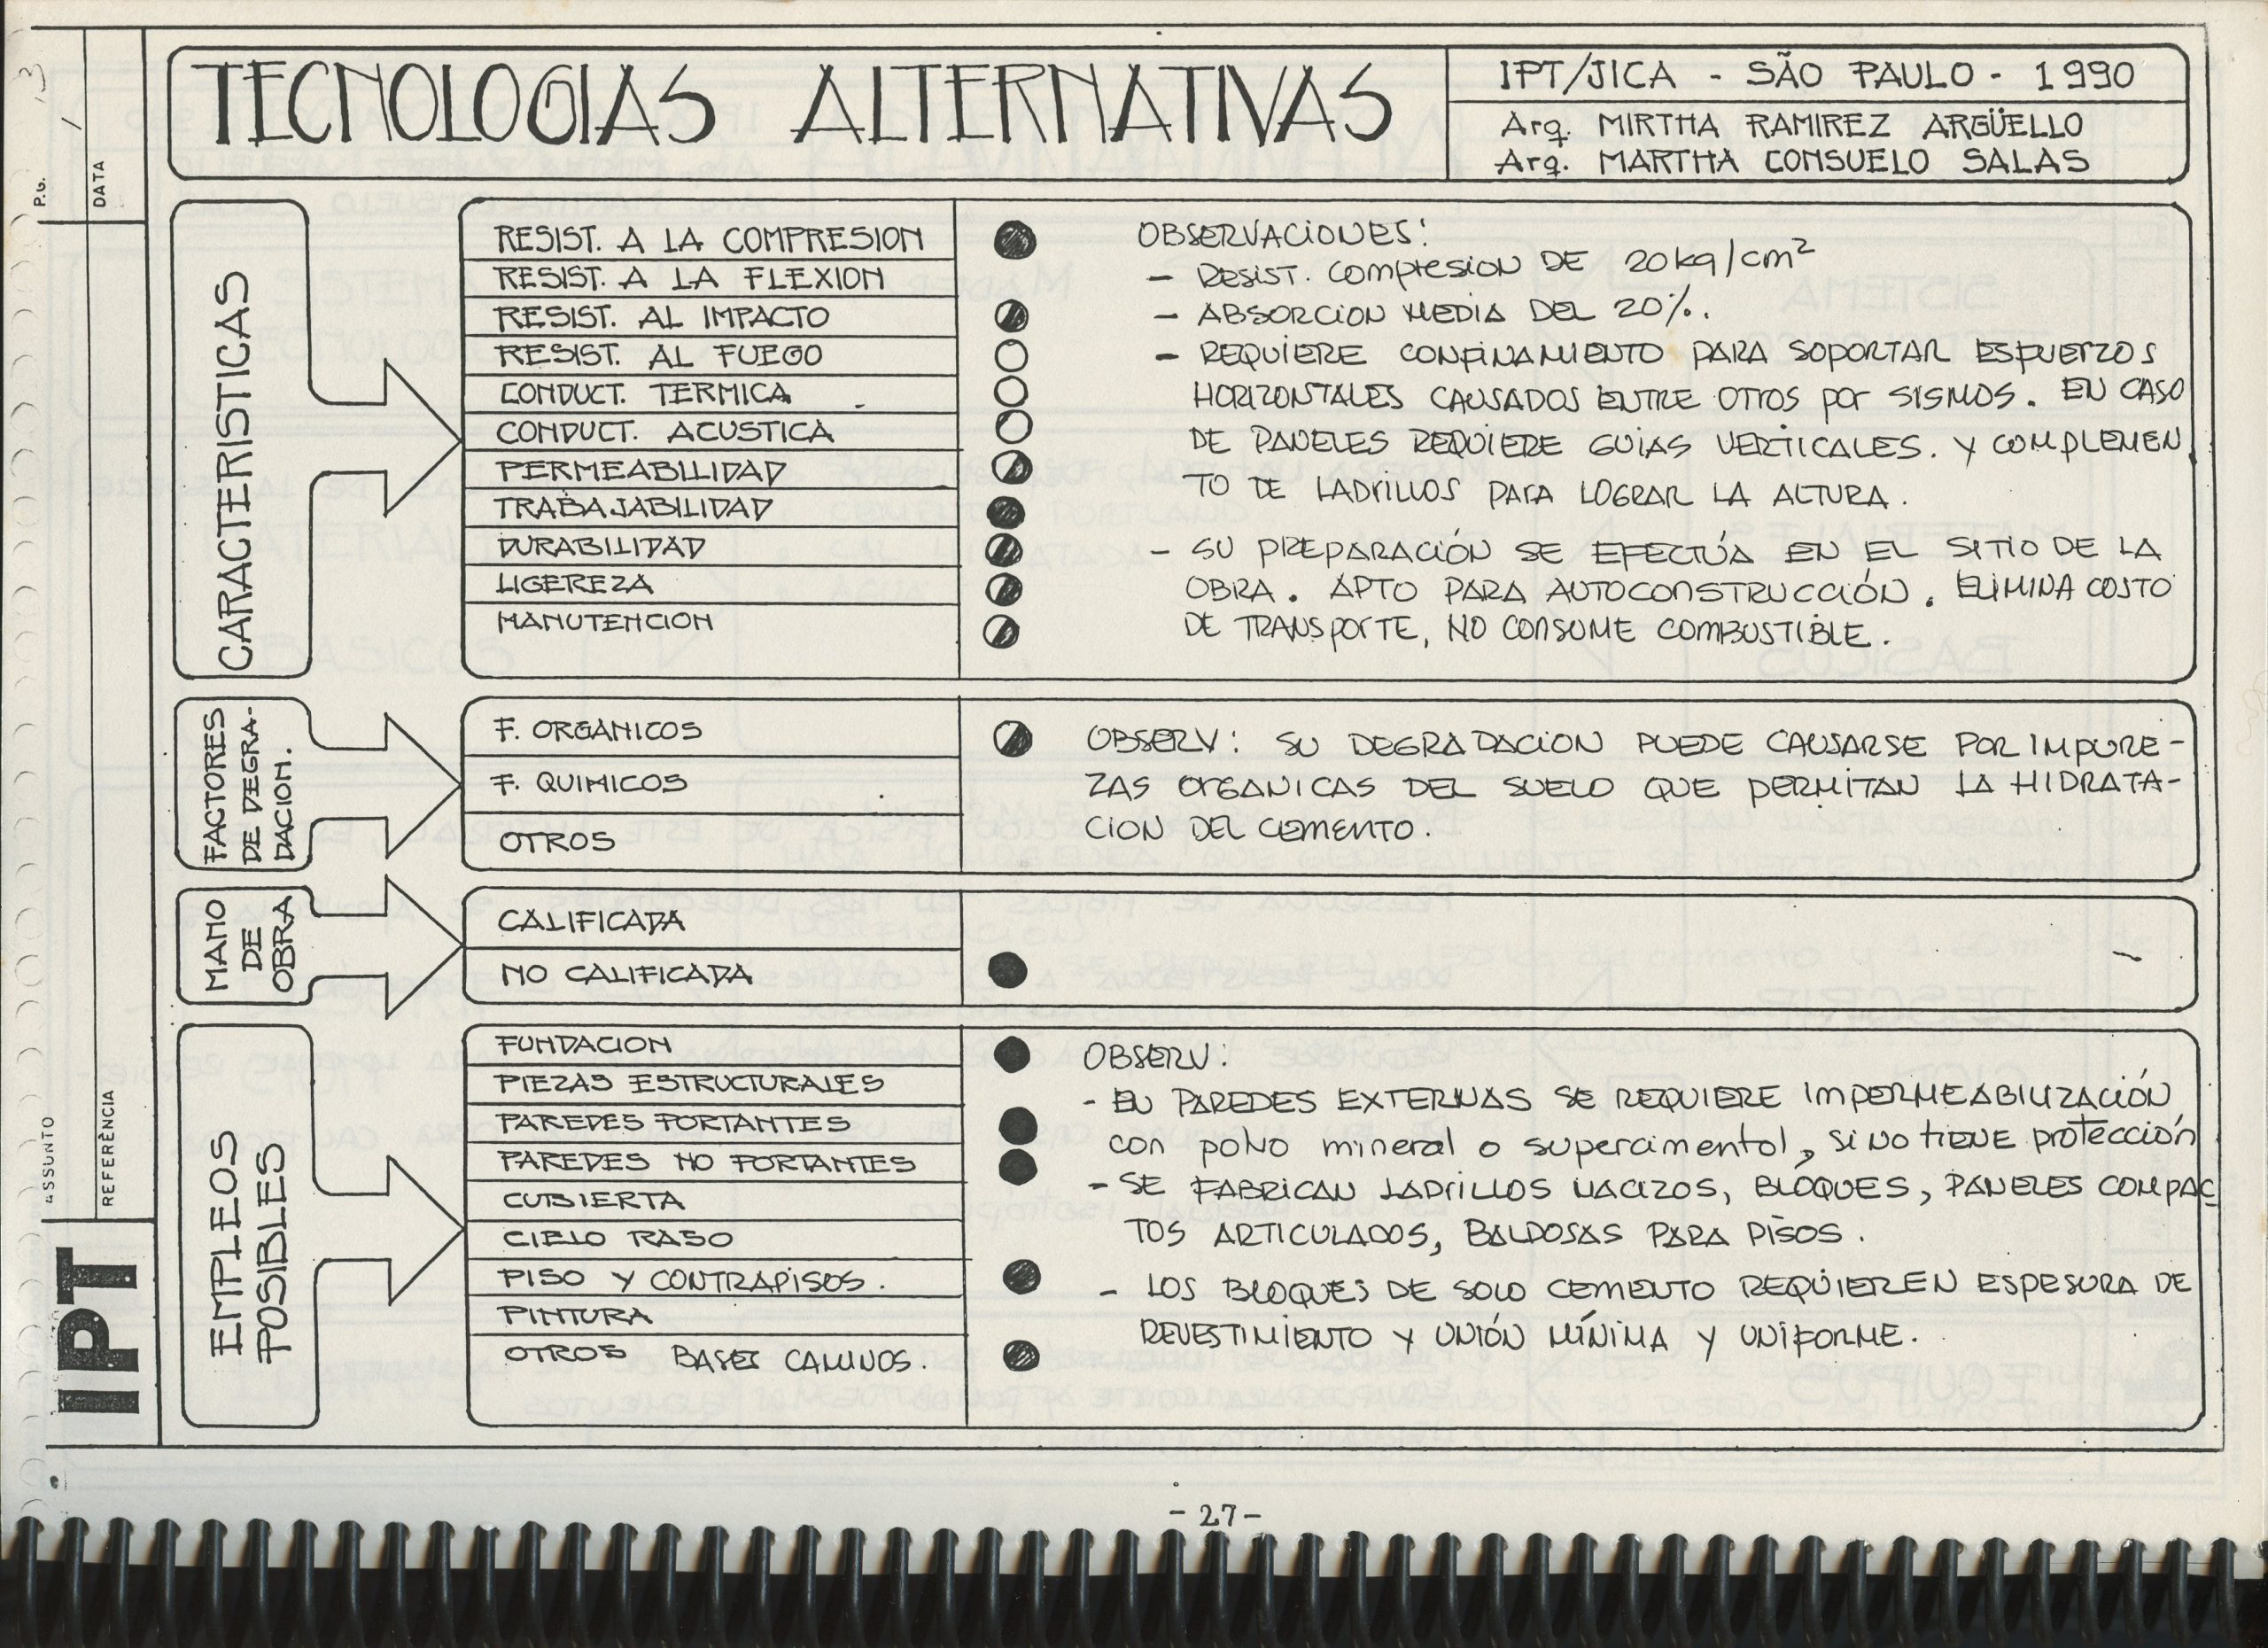 TECNOLOGIAS ALTERNATIVAS
IPT/JICA - SÃO PAULO - 1990
Arq. MIRTHA RAMIREZ ARGÜELLO
Arq. MARTHA CONSUELO SALAS
P.G.
DATA
ASSUNTO
REFERÊNCIA
IPT
CARACTERISTICAS
RESIST. A LA COMPRESION
RESIST. A LA FLEXION
RESIST. AL IMPACTO
RESIST. AL FUEGO
CONDUCT. TERMICA
CONDUCT. ACUSTICA
PERMEABILIDAD
TRABAJABILIDAD
DURABILIDAD
LIGEREZA
MANUTENCION
OBSERVACIONES:
- RESIST. COMPRESION DE 20kg/cm²
- ABSORCION MEDIA DEL 20%.
- REQUIERE CONFINAMIENTO PARA SOPORTAR ESFUERZOS
HORIZONTALES CAUSADOS ENTRE OTROS POR SISMOS. EN CASO
DE PANELES REQUIERE GUIAS VERTICALES. Y COMPLEMEN
TO DE LADRILLOS PARA LOGRAR LA ALTURA.
- SU PREPARACIÓN SE EFECTÚA EN EL SITIO DE LA
OBRA. APTO PARA AUTOCONSTRUCCIÓN. ELIMINA COSTO
DE TRANSPORTE, NO CONSUME COMBUSTIBLE.
FACTORES
DE DEGRA-
DACION.
F. ORGANICOS
F. QUIMICOS
OTROS
OBSERV: SU DEGRADACION PUEDE CAUSARSE POR IMPURE-
ZAS ORGANICAS DEL SUELO QUE PERMITAN LA HIDRATA-
CION DEL CEMENTO.
MANO
DE
OBRA
CALIFICADA
NO CALIFICADA
EMPLEOS
POSIBLES
FUNDACION
PIEZAS ESTRUCTURALES
PAREDES PORTANTES
PAREDES NO PORTANTES
CUBIERTA
CIELO RASO
PISO Y CONTRAPISOS.
PINTURA
OTROS BASES CAMINOS.
OBSERV:
- EN PAREDES EXTERNAS SE REQUIERE IMPERMEABILIZACIÓN
con polvo mineral o supercimentol, SI NO TIENE protección
- SE FABRICAN LADRILLOS MACIZOS, BLOQUES, PANELES COMPAC
TOS ARTICULADOS, BALDOSAS PARA PISOS.
- LOS BLOQUES DE SOLO CEMENTO REQUIEREN ESPESURA DE
REVESTIMIENTO Y UNIÓN MÍNIMA Y UNIFORME.
- 27 -